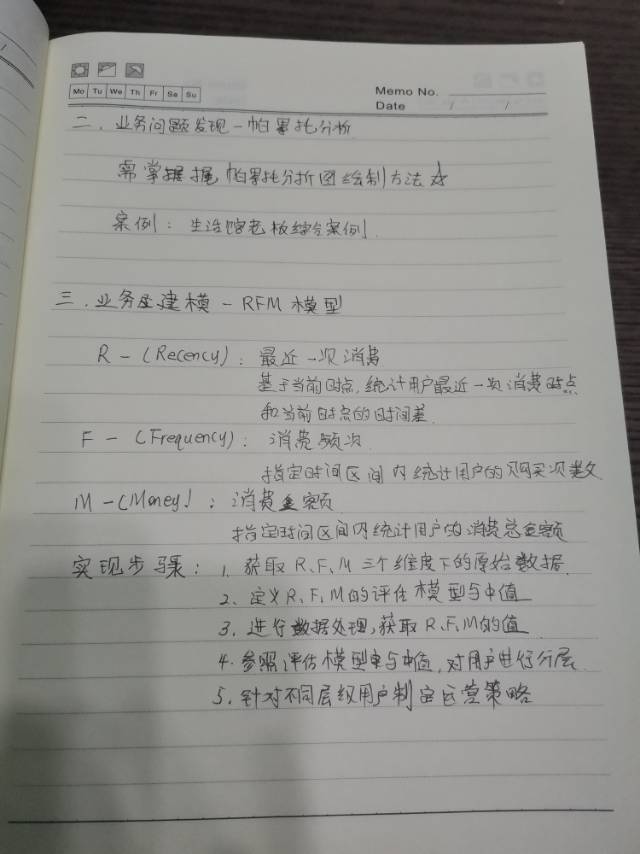 Mo Tu We Th Fr Sa Su
Memo No.
Date / /
二、业务问题发现-帕累托分析
需掌握 帕累托分析图绘制方法☆
案例：生活馆老板综合案例
三、业务建模-RFM模型
R-(Recency)：最近一次消费
基于当前时点,统计用户最近一次消费时点
和当前时点的时间差
F-(Frequency)：消费频次
指定时间区间内统计用户的购买次数
M-(Money)：消费金额
指定时间区间内统计用户的消费总金额
实现步骤：1、获取R、F、M三个维度下的原始数据
2、定义R、F、M的评估模型与中值
3、进行数据处理,获取R、F、M的值
4、参照评估模型与中值,对用户进行分层
5、针对不同层级用户制定运营策略